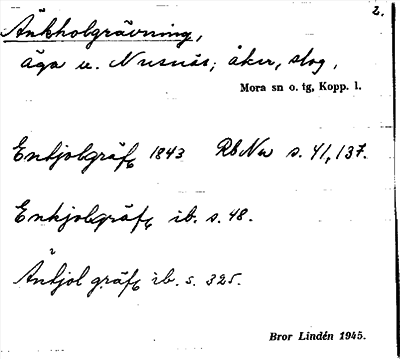 2.
Änkholgrävning,
äga u. Nusnäs; åker, slog,
Mora sn o. tg, Kopp. l.
Enkjolgräf, 1843 RbNu s. 41, 137.
Enkjolgräf, ib. s. 48.
Änkjol gräf, ib. s. 325.
Bror Lindén 1945.